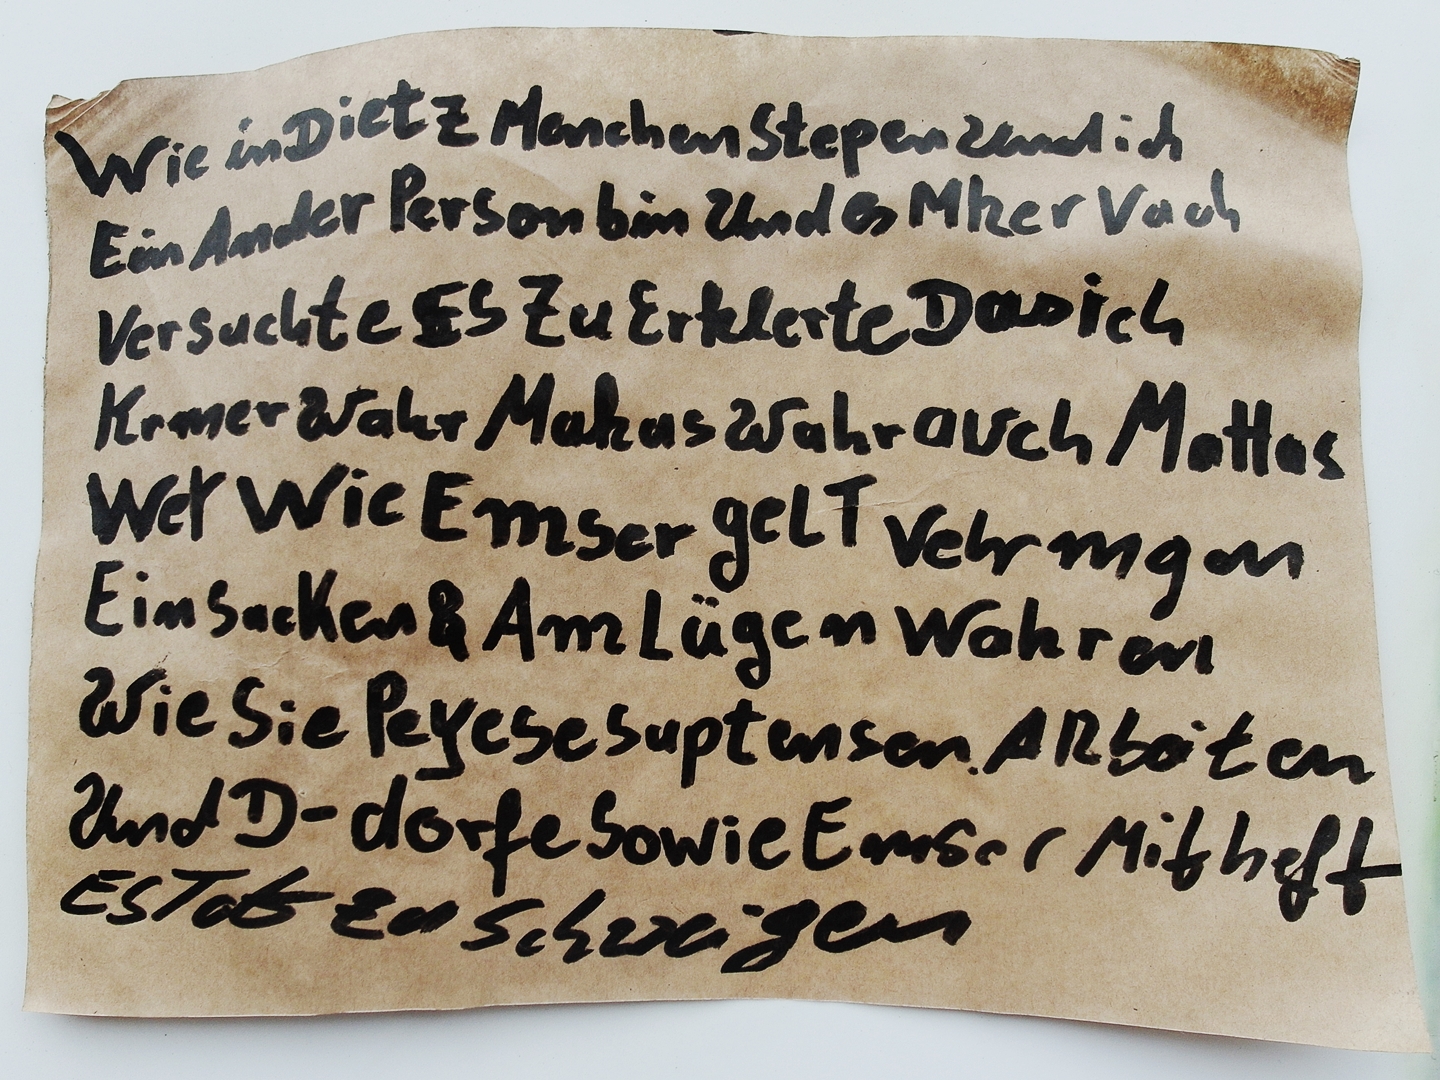 Wie in Dietz Manchen Stepen und ich
Ein Ander Person bin Und es Mker Vach
Versuchte ES Zu Erklerte Das ich
Krmer Wahr Makas Wahr auch Mattas
Wet Wie Emser gelT Vehrmgen
Ein Sacken & Am Lügen Wahren
Wie Sie Peyese suptensen. ARbeiten
Und D-dorfe Sowie Emser Mit heft
ES Tat zu Schweigen